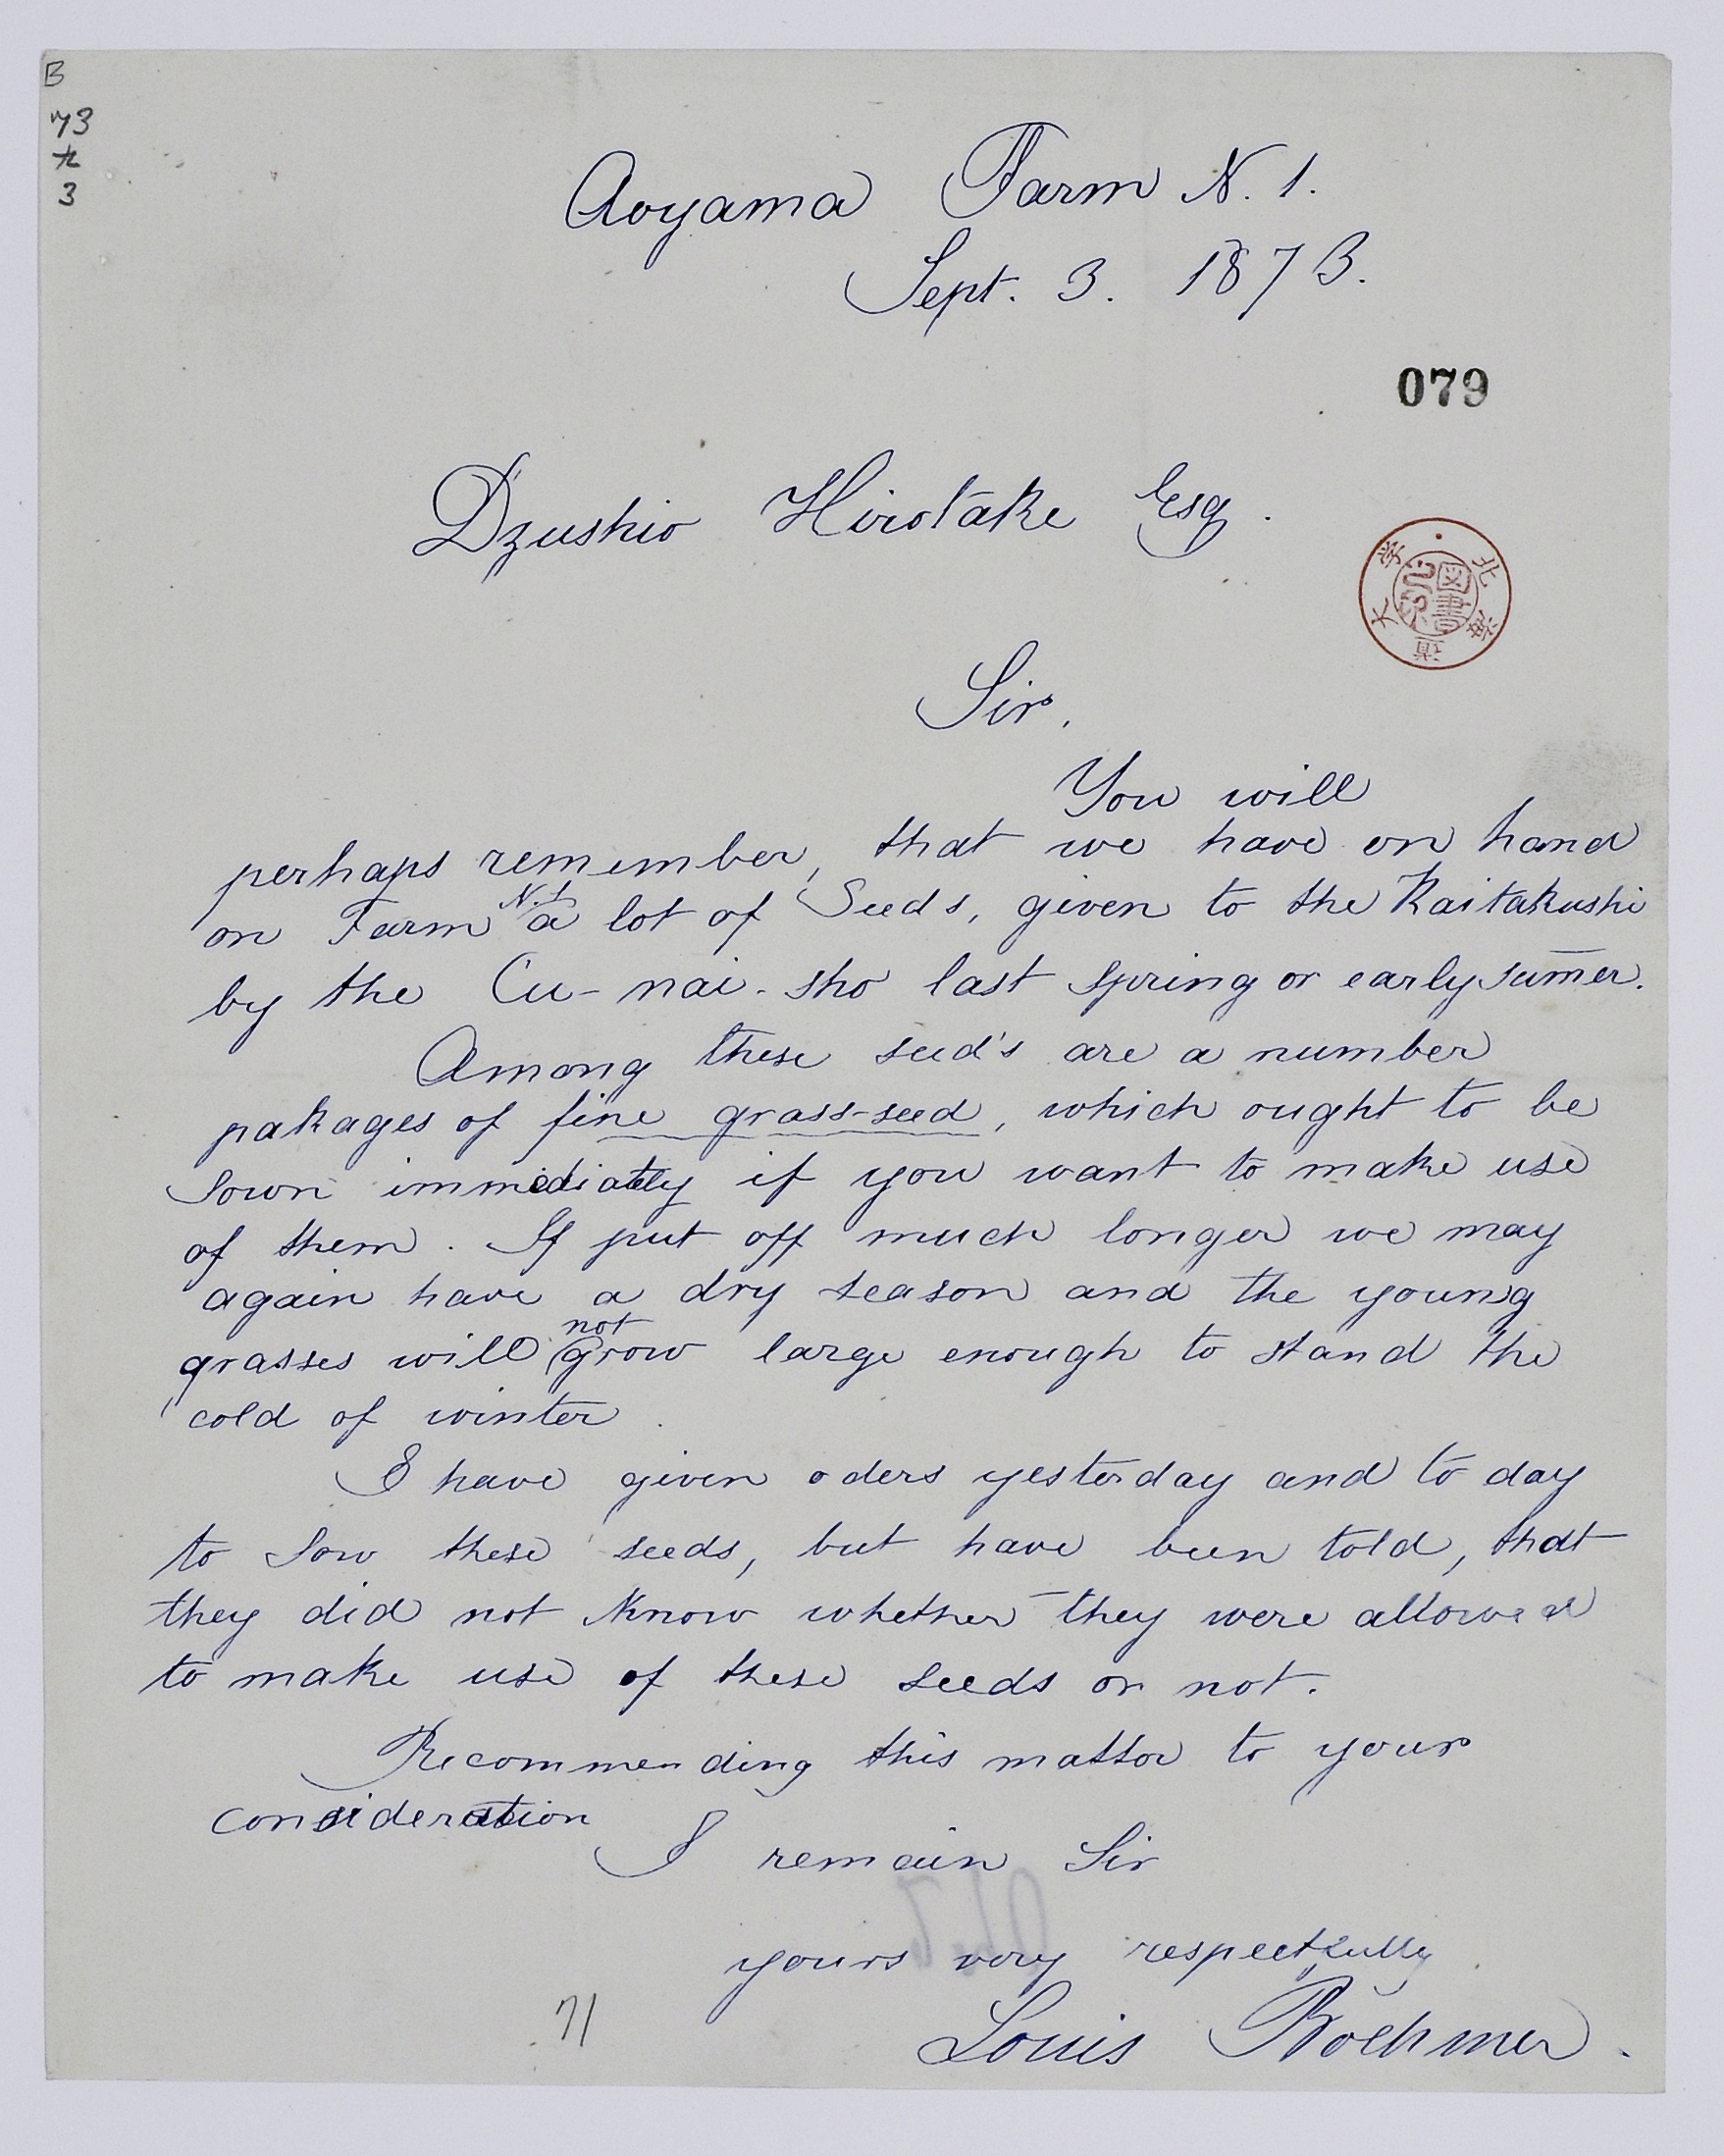 B
73
九
3
Aoyama Farm N. 1.
Sept. 3. 1873.
079
Dzushio Hirotake Esq.
北海道大学
図書
Sir,
You will
perhaps remember, that we have on hand
on Farm N.1 a lot of Seeds, given to the Kaitakushi
by the Cu-nai-sho last Spring or early sum̄er.
Among these seed's are a number
pakages of fine grass-seed, which ought to be
sown immediatly if you want to make use
of them. If put off much longer we may
again have a dry season and the young
grasses will not grow large enough to stand the
cold of winter.
I have given oders yesterday and to day
to sow these seeds, but have been told, that
they did not know whether they were allowed
to make use of these seeds or not.
Recommending this matter to your
consideration
I remain Sir
yours very respectfully
Louis Boehmer.
71